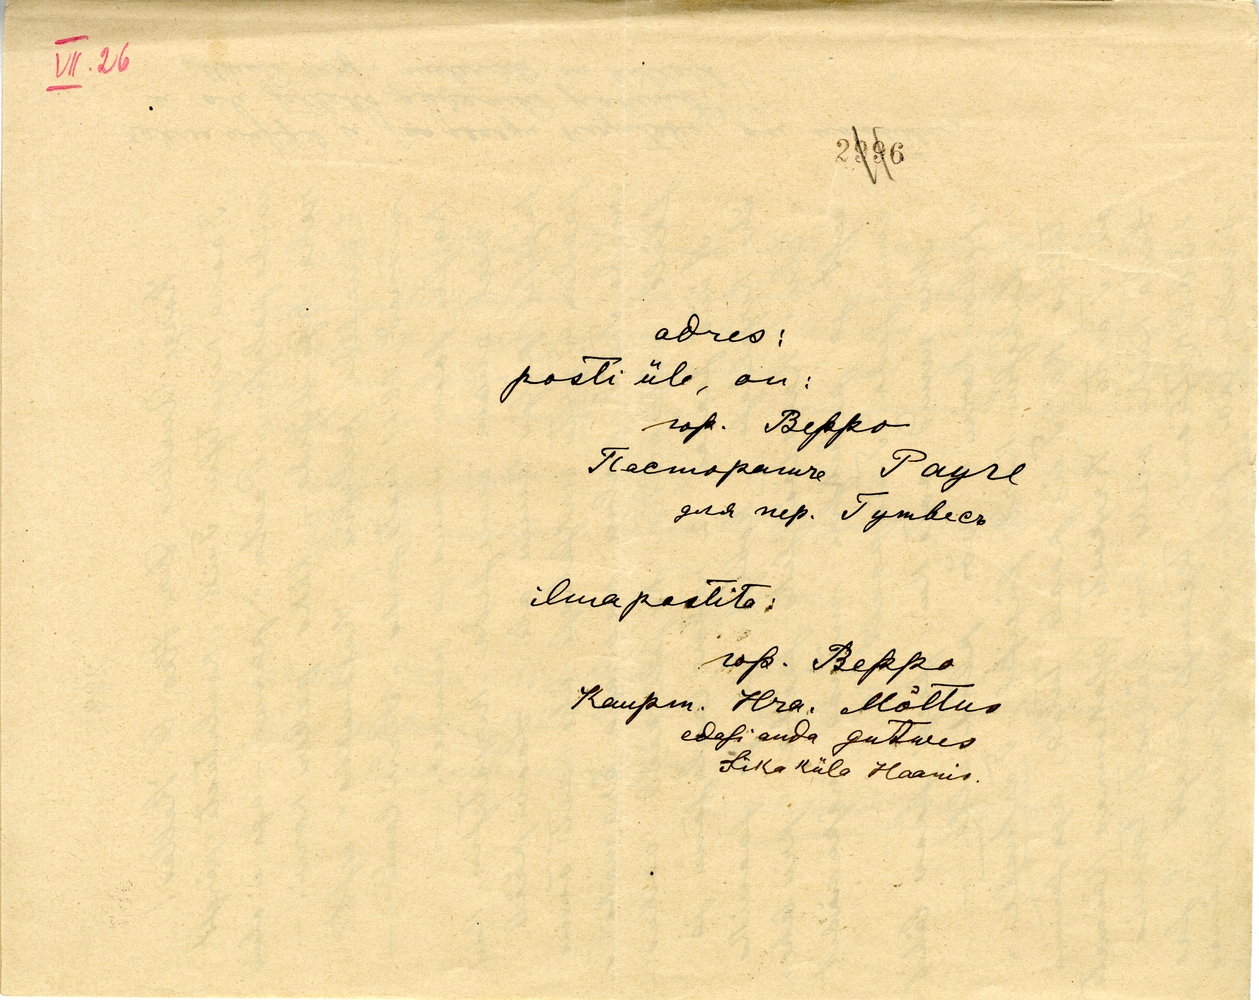 VII. 26
2996
adres:
posti üle, on:
гор. Верро
Пасторатъ Рауге
для пер. Гутвесъ
ilma postita:
гор. Верро
Kaupm. Hra. Mõttus
edasi anda Guttves
Sika küla Haanis.